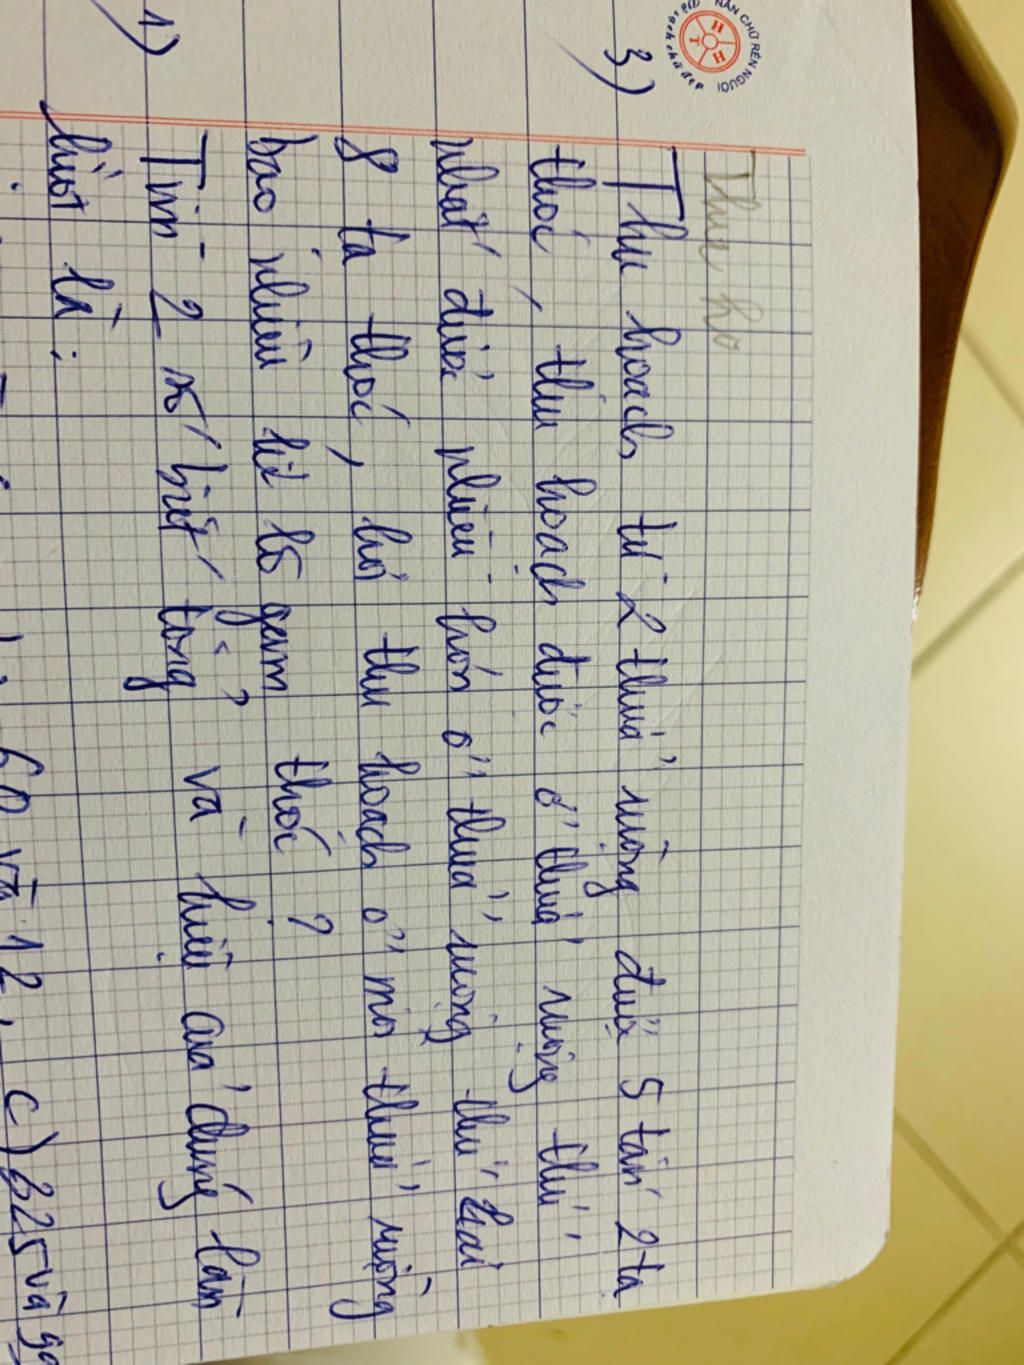 NẮN CHỮ RÈN NGƯỜI
H
T H
Thu ho
3) Thu hoạch từ 2 thửa ruộng được 5 tấn 2 tạ
thóc, thu hoạch được ở thửa ruộng thứ
nhất được nhiều hơn ở thửa ruộng thứ hai
8 tạ thóc, hỏi thu hoạch ở mỗi thửa ruộng
bao nhiêu ki lô gam thóc?
1) Tìm 2 số biết tổng và hiệu của chúng lần
lượt là:
60 và 12, c) 325 và